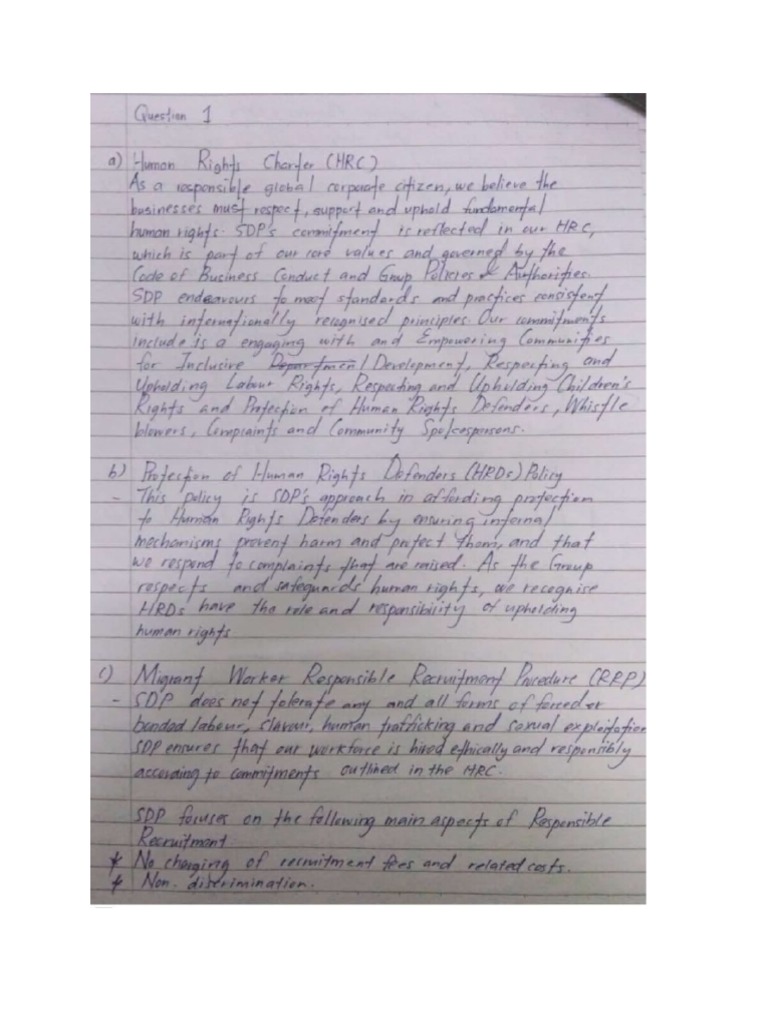 Question 1
a) Human Rights Charter (HRC)
As a responsible global corporate citizen, we believe the
businesses must respect, support and uphold fundamental
human rights. SDP's commitment is reflected in our HRC,
which is part of our core values and governed by the
Code of Business Conduct and Group Policies & Authorities.
SDP endeavours to meet standards and practices consistent
with internationally recognised principles. Our commitments
include is a engaging with and Empowering Communities
for Inclusive Development, Respecting and
Upholding Labour Rights, Respecting and Upholding Children's
Rights and Protection of Human Rights Defenders, Whistle
blowers, Complaints and Community Spokespersons.
b) Protection of Human Rights Defenders (HRDs) Policy
- This policy is SDP's approach in affording protection
to Human Rights Defenders by ensuring internal
mechanisms prevent harm and protect them, and that
we respond to complaints that are raised. As the Group
respects and safeguards human rights, we recognise
HRDs have the role and responsibility of upholding
human rights
c) Migrant Worker Responsible Recruitment Procedure (RRP)
- SDP does not tolerate any and all forms of forced or
bonded labour, slavour, human trafficking and sexual exploitation
SDP ensures that our workforce is hired ethically and responsibly
according to commitments outlined in the HRC.
SDP focuses on the following main aspects of Responsible
Recruitment.
* No charging of recruitment fees and related costs.
* Non. discrimination.